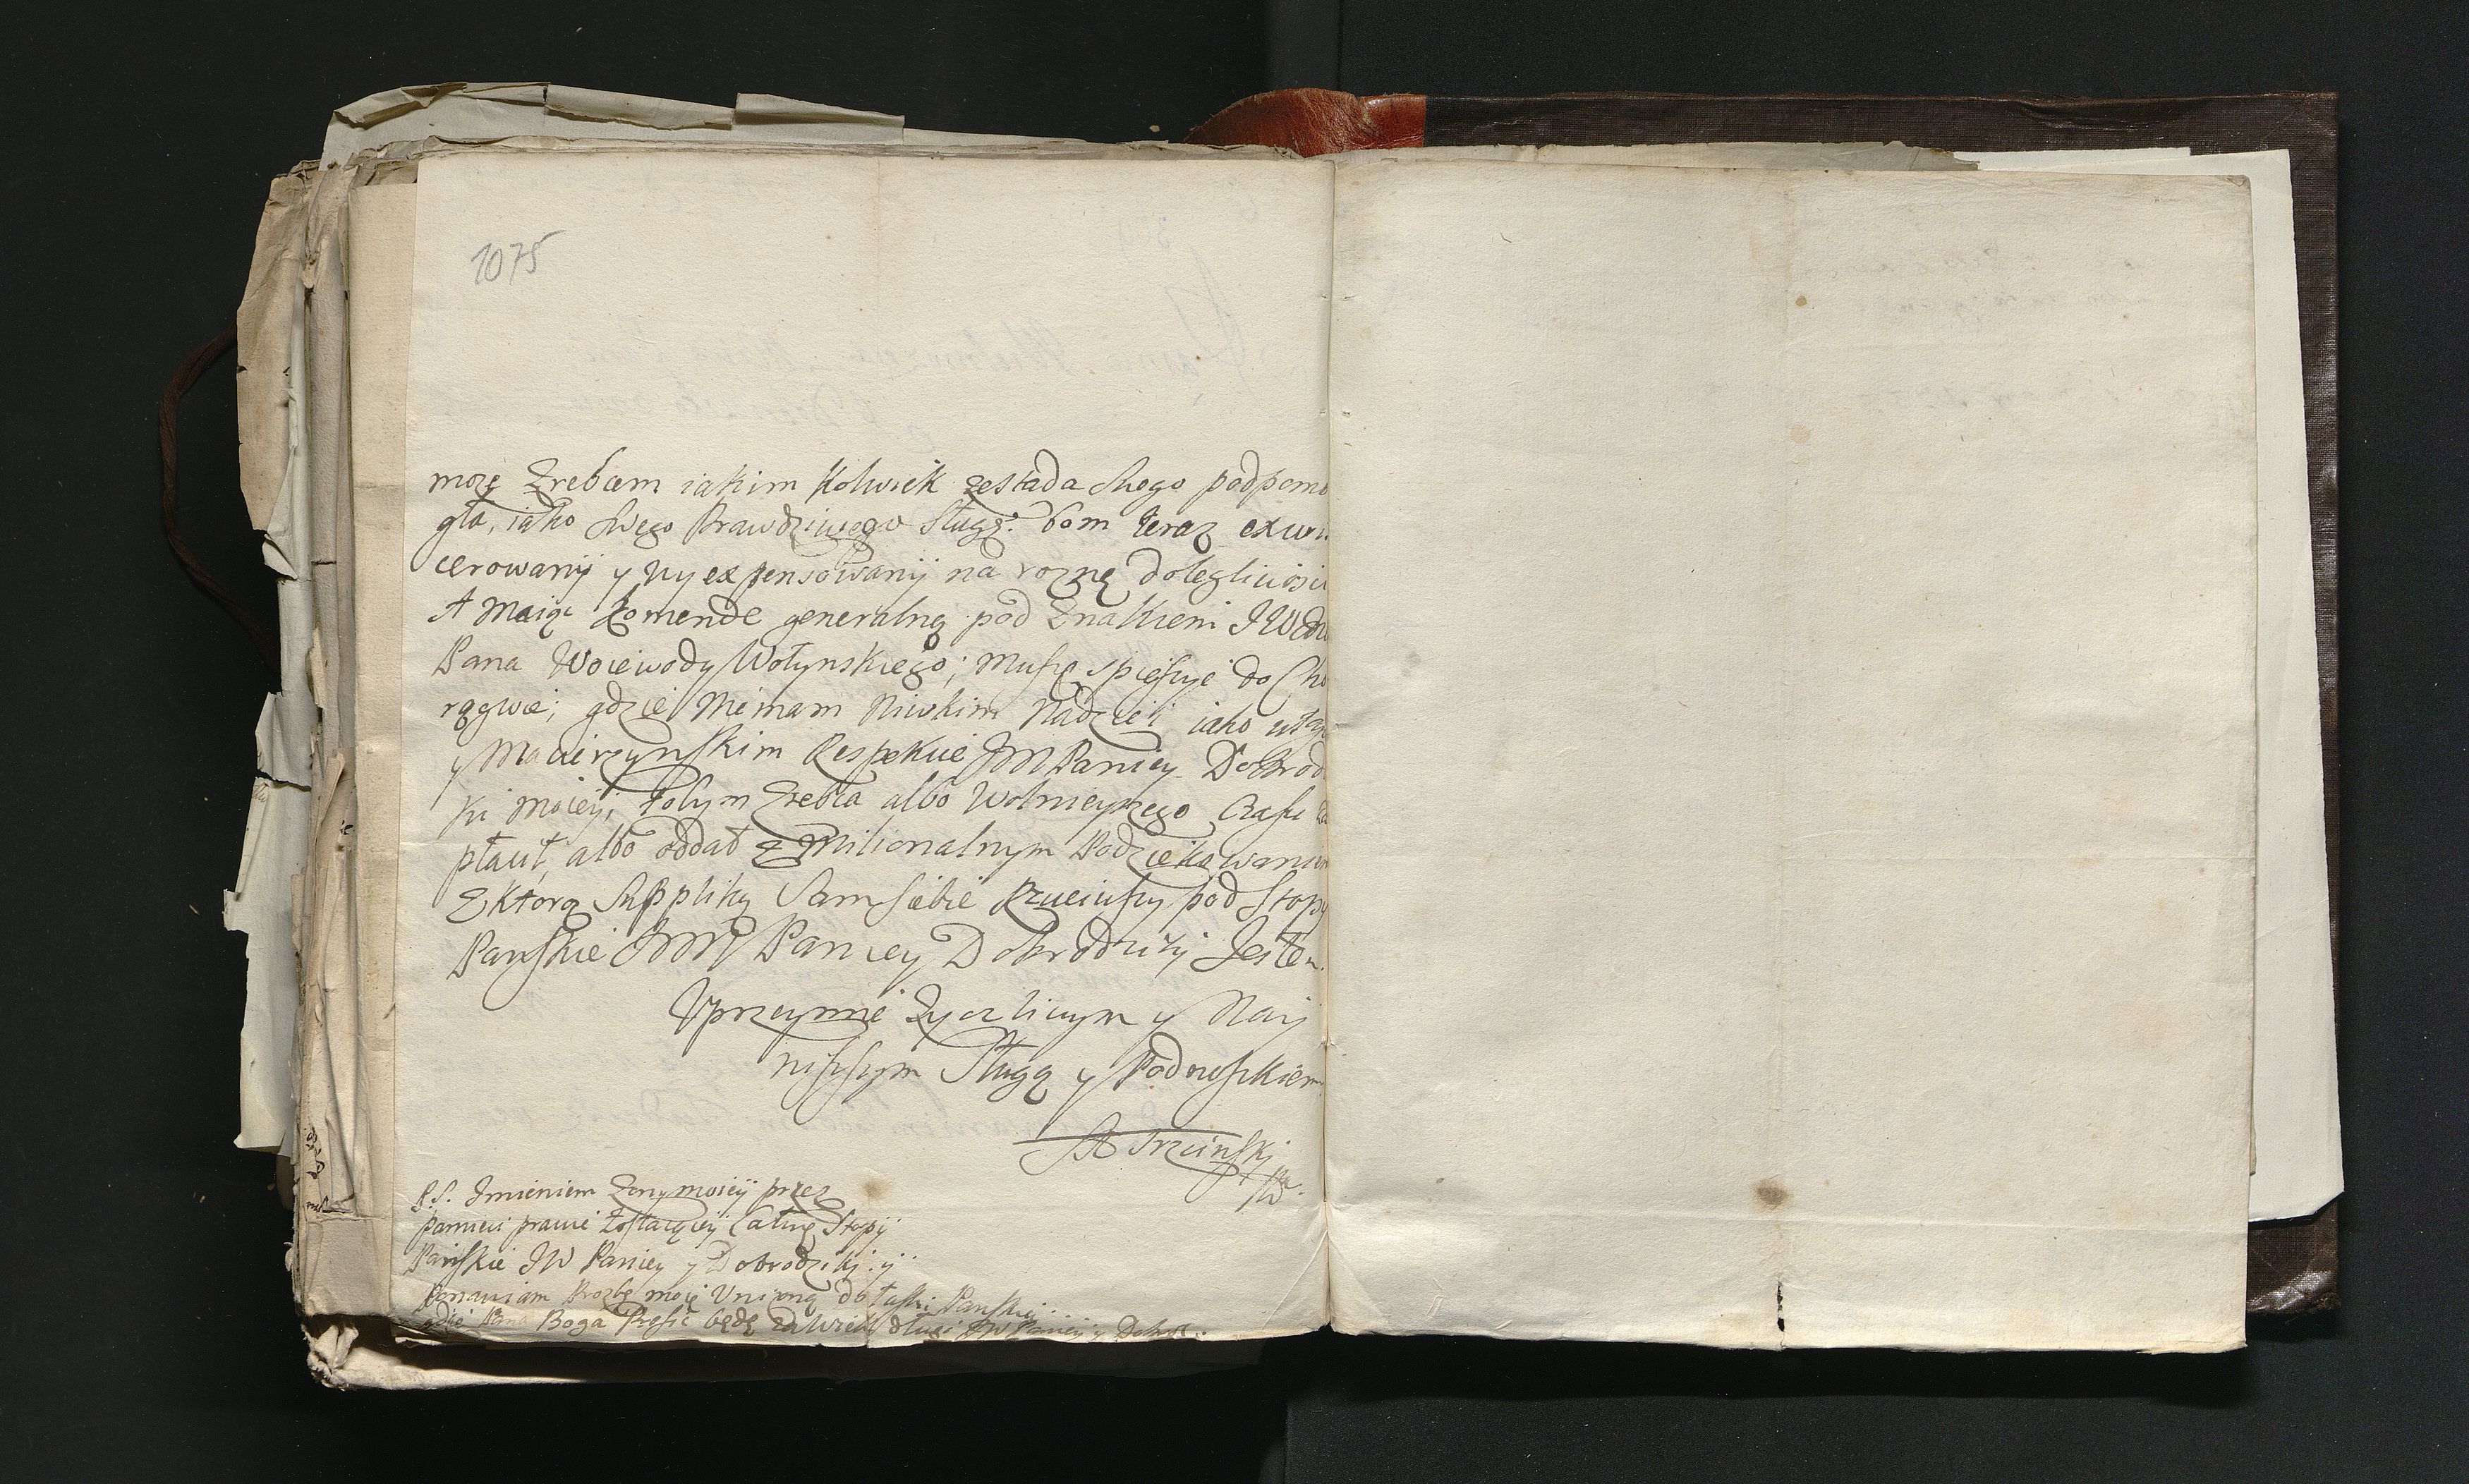 1075
mozę Zrebcem iakim kolwiek zestada swego podpomo
gła, iako swego Prawdziwego sługę. bom teraz
cerowanÿ y wyexpensowanÿ na roznę dolegliwosci
A Maiąc komendę generalną pod Znakiem
Pana Woiewody Wołynskiego; Muszę spieszyć do Cho
rągwie; gdzie Niemam Niwkim Nadzieÿ iako
y Macierzynskim Respekcie JM Paniey Dobrod
ki moieÿ; Zrebca albo Wolnieyszego Czasu
płacił, albo oddał z Milionalnym Podziękowaniem
Z ktorą Suppliką Sam siebie Rzuciwszy pod Stopy
Panskie JWM Paniey Dobrodziki Jestem
Uprzeymie Zyczliwym y Naÿ
niższym Sługą y Podnoszkiem
P.S. Imieniem Zony moieÿ przez
prawie Całuię Stopÿ
Pańskie JW Paniey y Dobrodziki y
Ponawiam Prozbę moię do łaski Panskieÿ
gdzie Pana Boga Prosić będę za Wiek długi JW Panieÿ y Dobr: